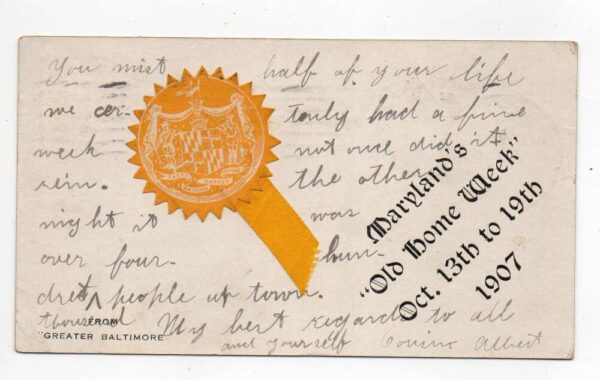 You mist half of your life
we cer- tenly had a fine
week not once did it
rein. the other
night it was
over four- hun-
dret ^ people up town.
thousend My best regard to all
and yourself Cousine Albert
Maryland's
"Old Home Week"
Oct. 13th to 19th
1907
FROM
"GREATER BALTIMORE"